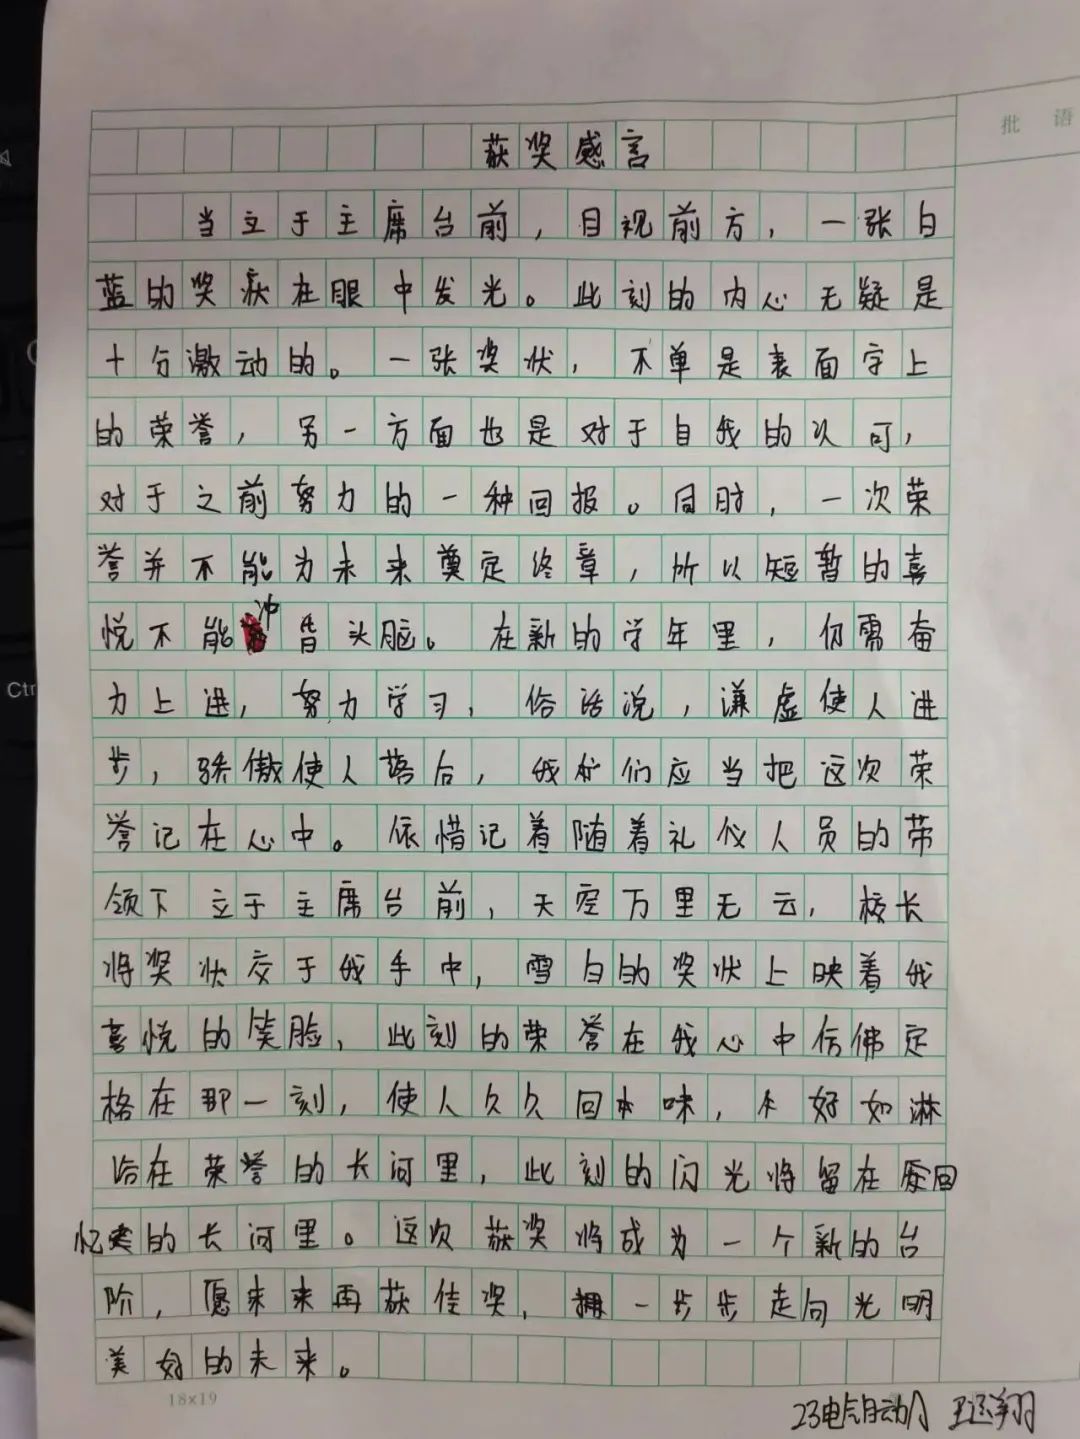 批 语
获奖感言
当立于主席台前，目视前方，一张白
蓝的奖状在眼中发光。此刻的内心无疑是
十分激动的。一张奖状，不单是表面字上
的荣誉，另一方面也是对于自我的认可，
对于之前努力的一种回报。同时，一次荣
誉并不能为未来奠定终章，所以短暂的喜
悦不能冲昏头脑。在新的学年里，仍需奋
力上进，努力学习，俗话说，谦虚使人进
步，骄傲使人落后，我们应当把这次荣
誉记在心中。依惜记着随着礼仪人员的带
领下立于主席台前，天空万里无云，校长
将奖状交于我手中，雪白的奖状上映着我
喜悦的笑脸，此刻的荣誉在我心中仿佛定
格在那一刻，使人久久回味，好如淋
浴在荣誉的长河里，此刻的闪光将留在回
忆的长河里。这次获奖将成为一个新的台
阶，愿未来再获佳奖，一步步走向光明
美好的未来。
18×19
23电气自动 翔
Ctr